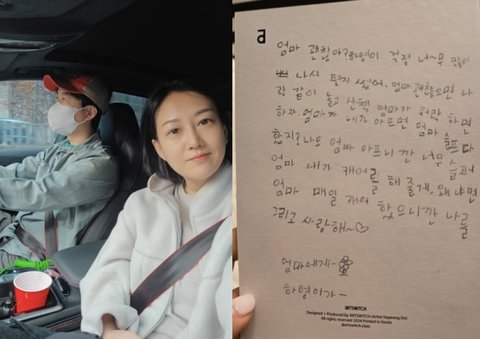 a
엄마 괜찮아? 하영이 걱정 너~무 많이
나서 편지 썼어. 엄마 괜찮으면 나
랑 같이 놀 산책 엄마가 허락 하면
하자 엄마가 내가 아프면 엄마 슬프다
했지? 나도 엄마 아프니깐 너무 슬퍼
엄마 내가 캐어를 해 줄게. 왜냐면
엄마 매일 캐어 했으니깐 나를
그리고 사랑해~♡
엄마에게~
하영이가~
ARTSWITCH
Designed + Produced by ARTSWITCH (Artist Hayeong Do)
All rights reserved. 2024 Printed in Korea
@artswitch.class